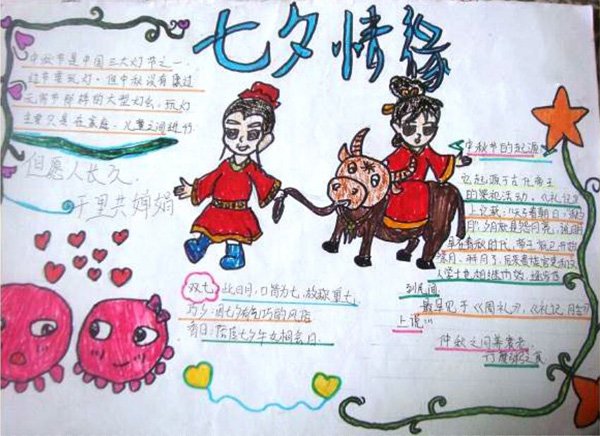 七夕情缘
中秋节是中国三大灯节之一,
过节要玩灯。但中秋没有像过
元宵节那样的大型灯会,玩灯
主要只是在家庭、儿童之间进行
但愿人长久,
千里共婵娟
双七:此日月、日皆为七,故称重七
巧夕:因七夕有乞巧的风俗
首日:陪度七夕牛女相会日
中秋节的起源
它起源于古代帝王
的祭祀活动。《礼记》
上记载:"天子春朝日,秋夕
月",夕月就是祭月亮,说明
早在春秋时代,帝王就已开始
祭月、拜月了,后来贵族官吏和文
人学士也相继仿效,逐步传
到民间
最早见于《周礼》,《礼记·月令》
上说:"
仲秋之月养衰老,
行糜粥之食